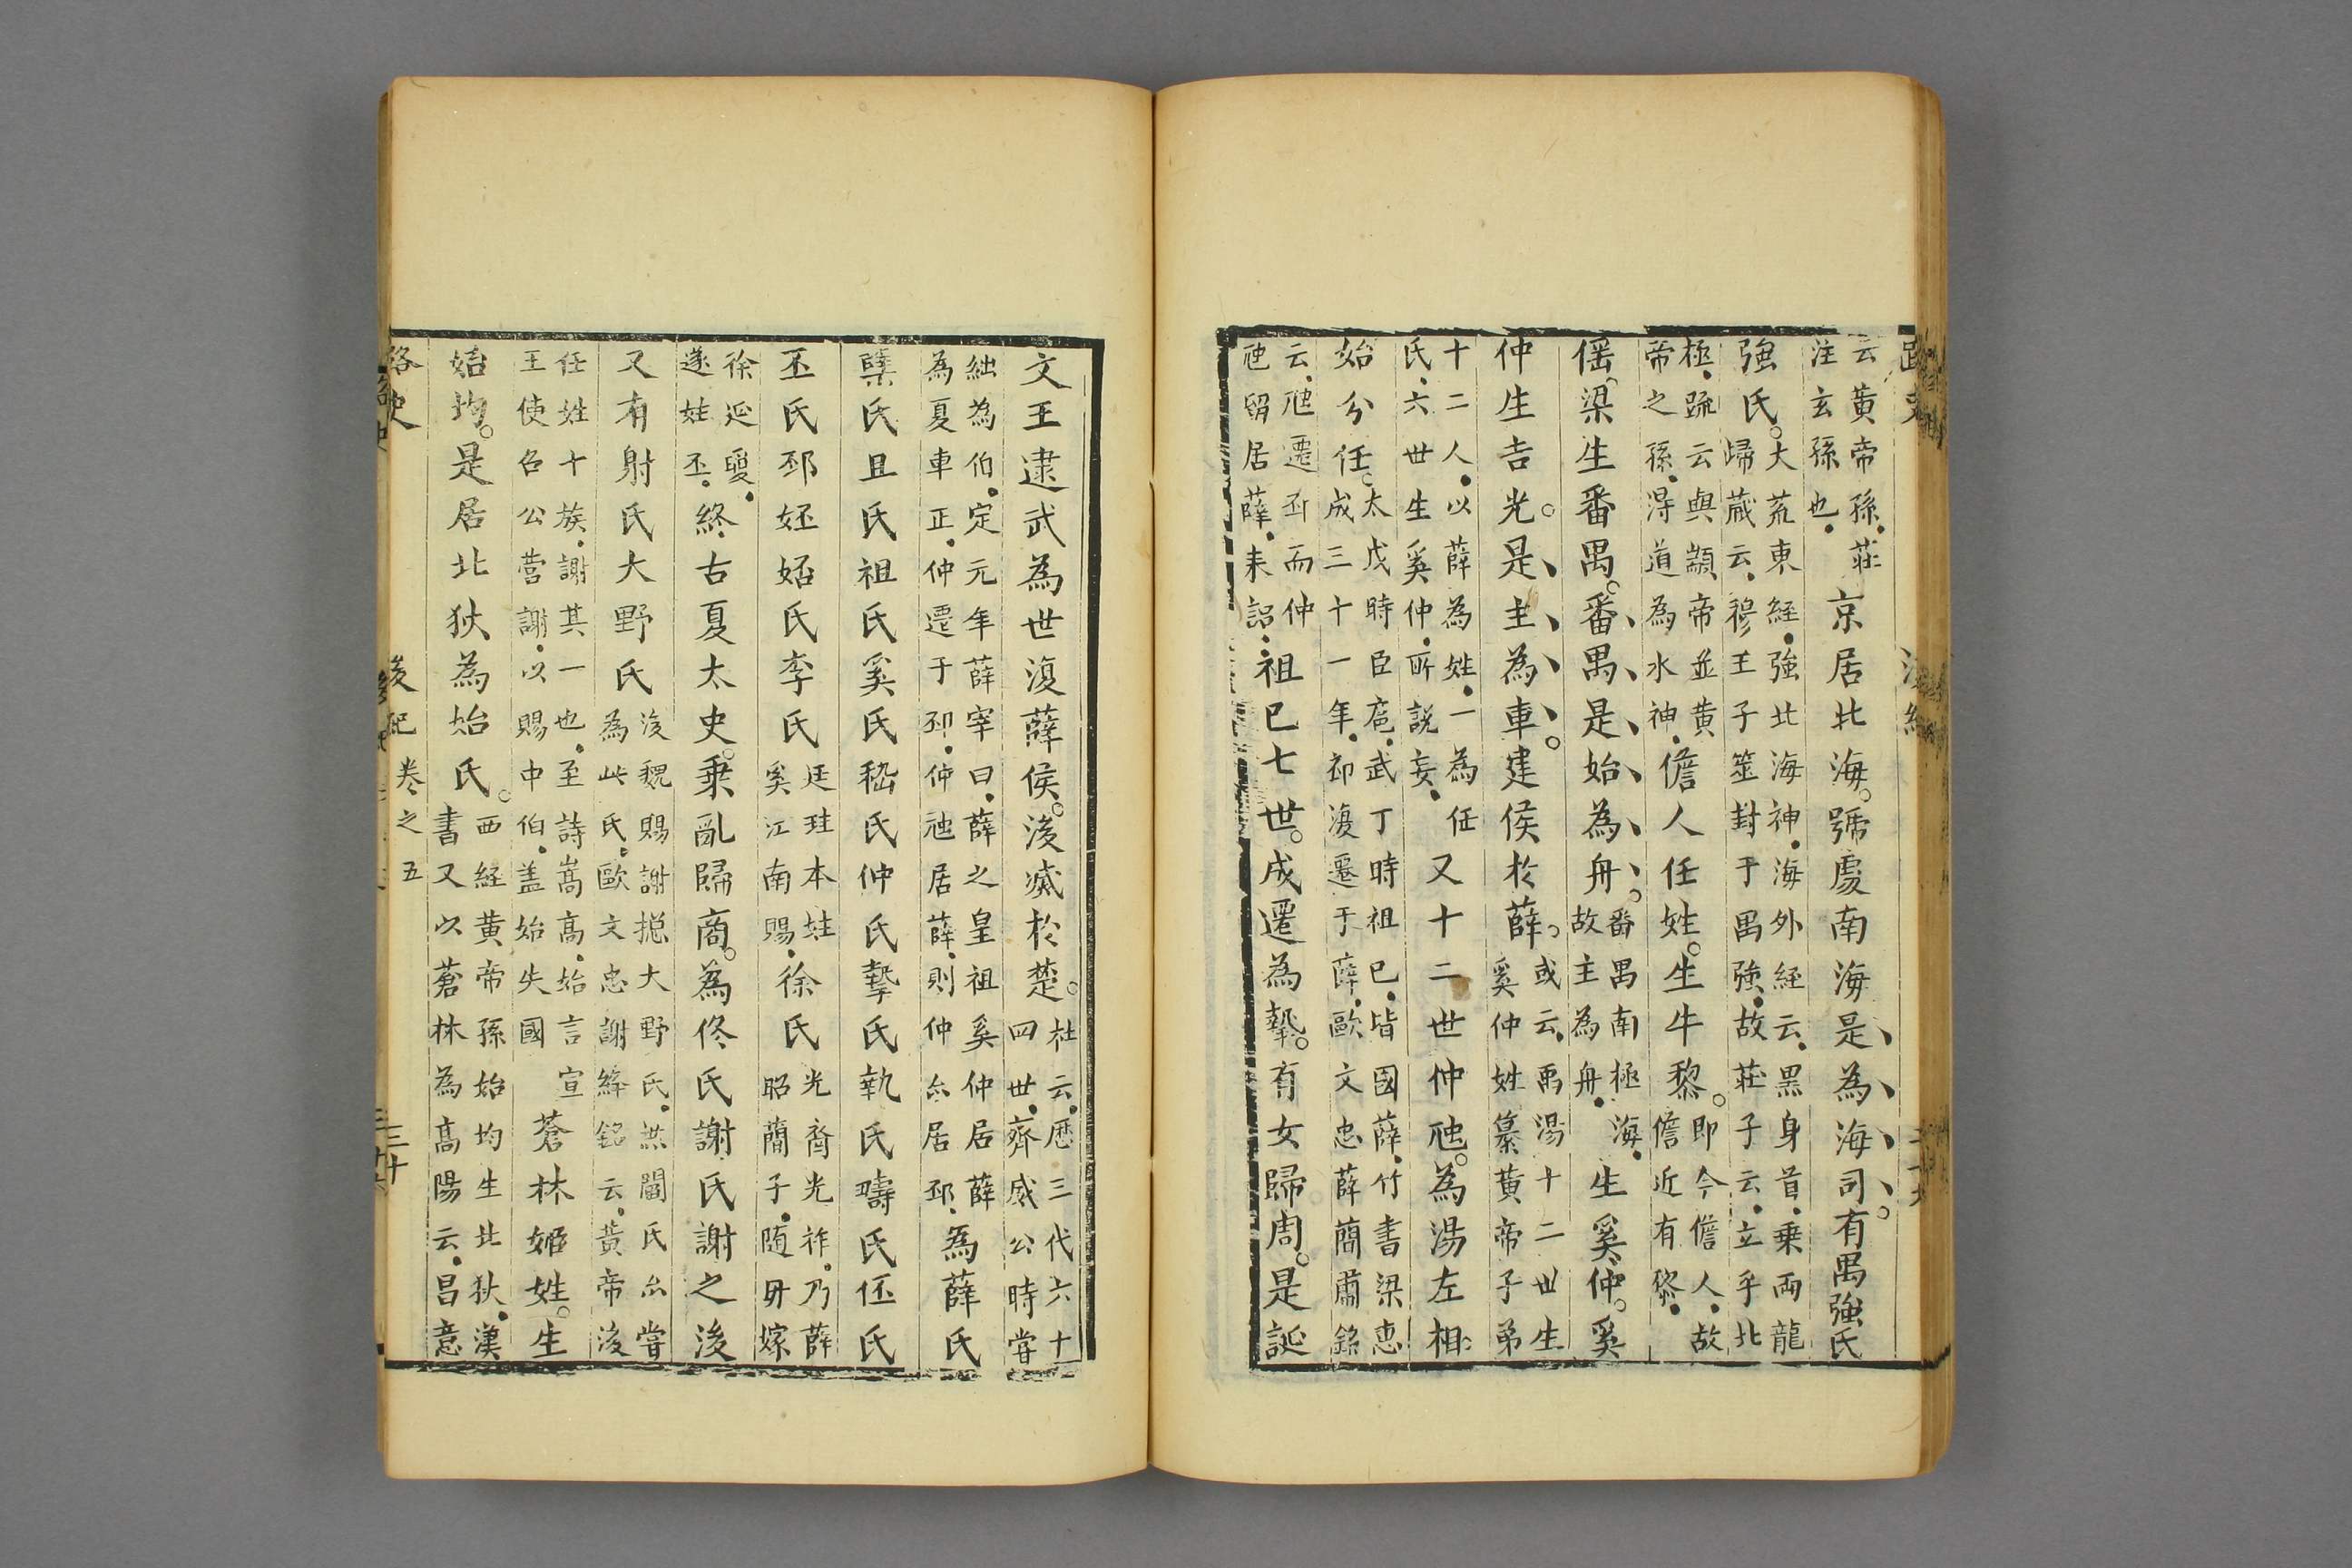 云黃帝孫莊
注玄孫也
京居北海號處南海是為海司有禺強氏
強氏
大荒東經強北海神海外經云黑身首乗兩龍
歸藏云穆王子筮封于禺強故莊子云立乎北
極疏云與顓帝並黃
帝之孫淂道為水神
儋人任姓生牛黎
即今儋人故
儋近有黎
傜梁生番禺番禺是始為舟
番禺南極海
故主為舟
生奚仲奚
仲生吉光是主為車建侯於薛
或云禹湯十二世生
奚仲姓纂黃帝子弟
十二人以薛為姓一為任
氏六世生奚仲所說妄
又十二世仲虺為湯左相
始分任
太戊時臣扈武丁時祖巳皆國薛竹書梁恵
成三十一年邳復遷于薛歐文忠薛簡肅銘
云虺遷邳而仲
虺留居薛未詔
祖巳七世成遷為摯有女歸周是誕
文王逮武為世復薛侯後滅於楚
杜云歴三代六十
四世齊威公時嘗
絀為伯定元年薛宰曰薛之皇祖奚仲居薛
為夏車正仲遷于邳仲虺居薛則仲亦居邳
為薛氏
櫱氏且氏祖氏奚氏嵇氏仲氏摯氏執氏疇氏伾氏
丕氏邳妚㛃氏李氏
廷珪本𡋡
奚江南賜
徐氏
光齊光祚乃薛
昭蔄子随毋嫁
徐延瓊
遂姓丕
終古夏太史乗亂歸商為佟氏謝氏謝之後
又有射氏大野氏
後魏賜謝揔大野氏洪閻氏亦嘗
為此氏歐文忠謝絳銘云黃帝後
任姓十族謝其一也至詩嵩高始言宣
王使召公營謝以賜申伯盖始失國
蒼林姬姓生
始均是居北狄為始氏
西經黃帝孫始均生北狄漢
書又以蒼林為高陽云昌意
路史
後紀
卷之五
三十